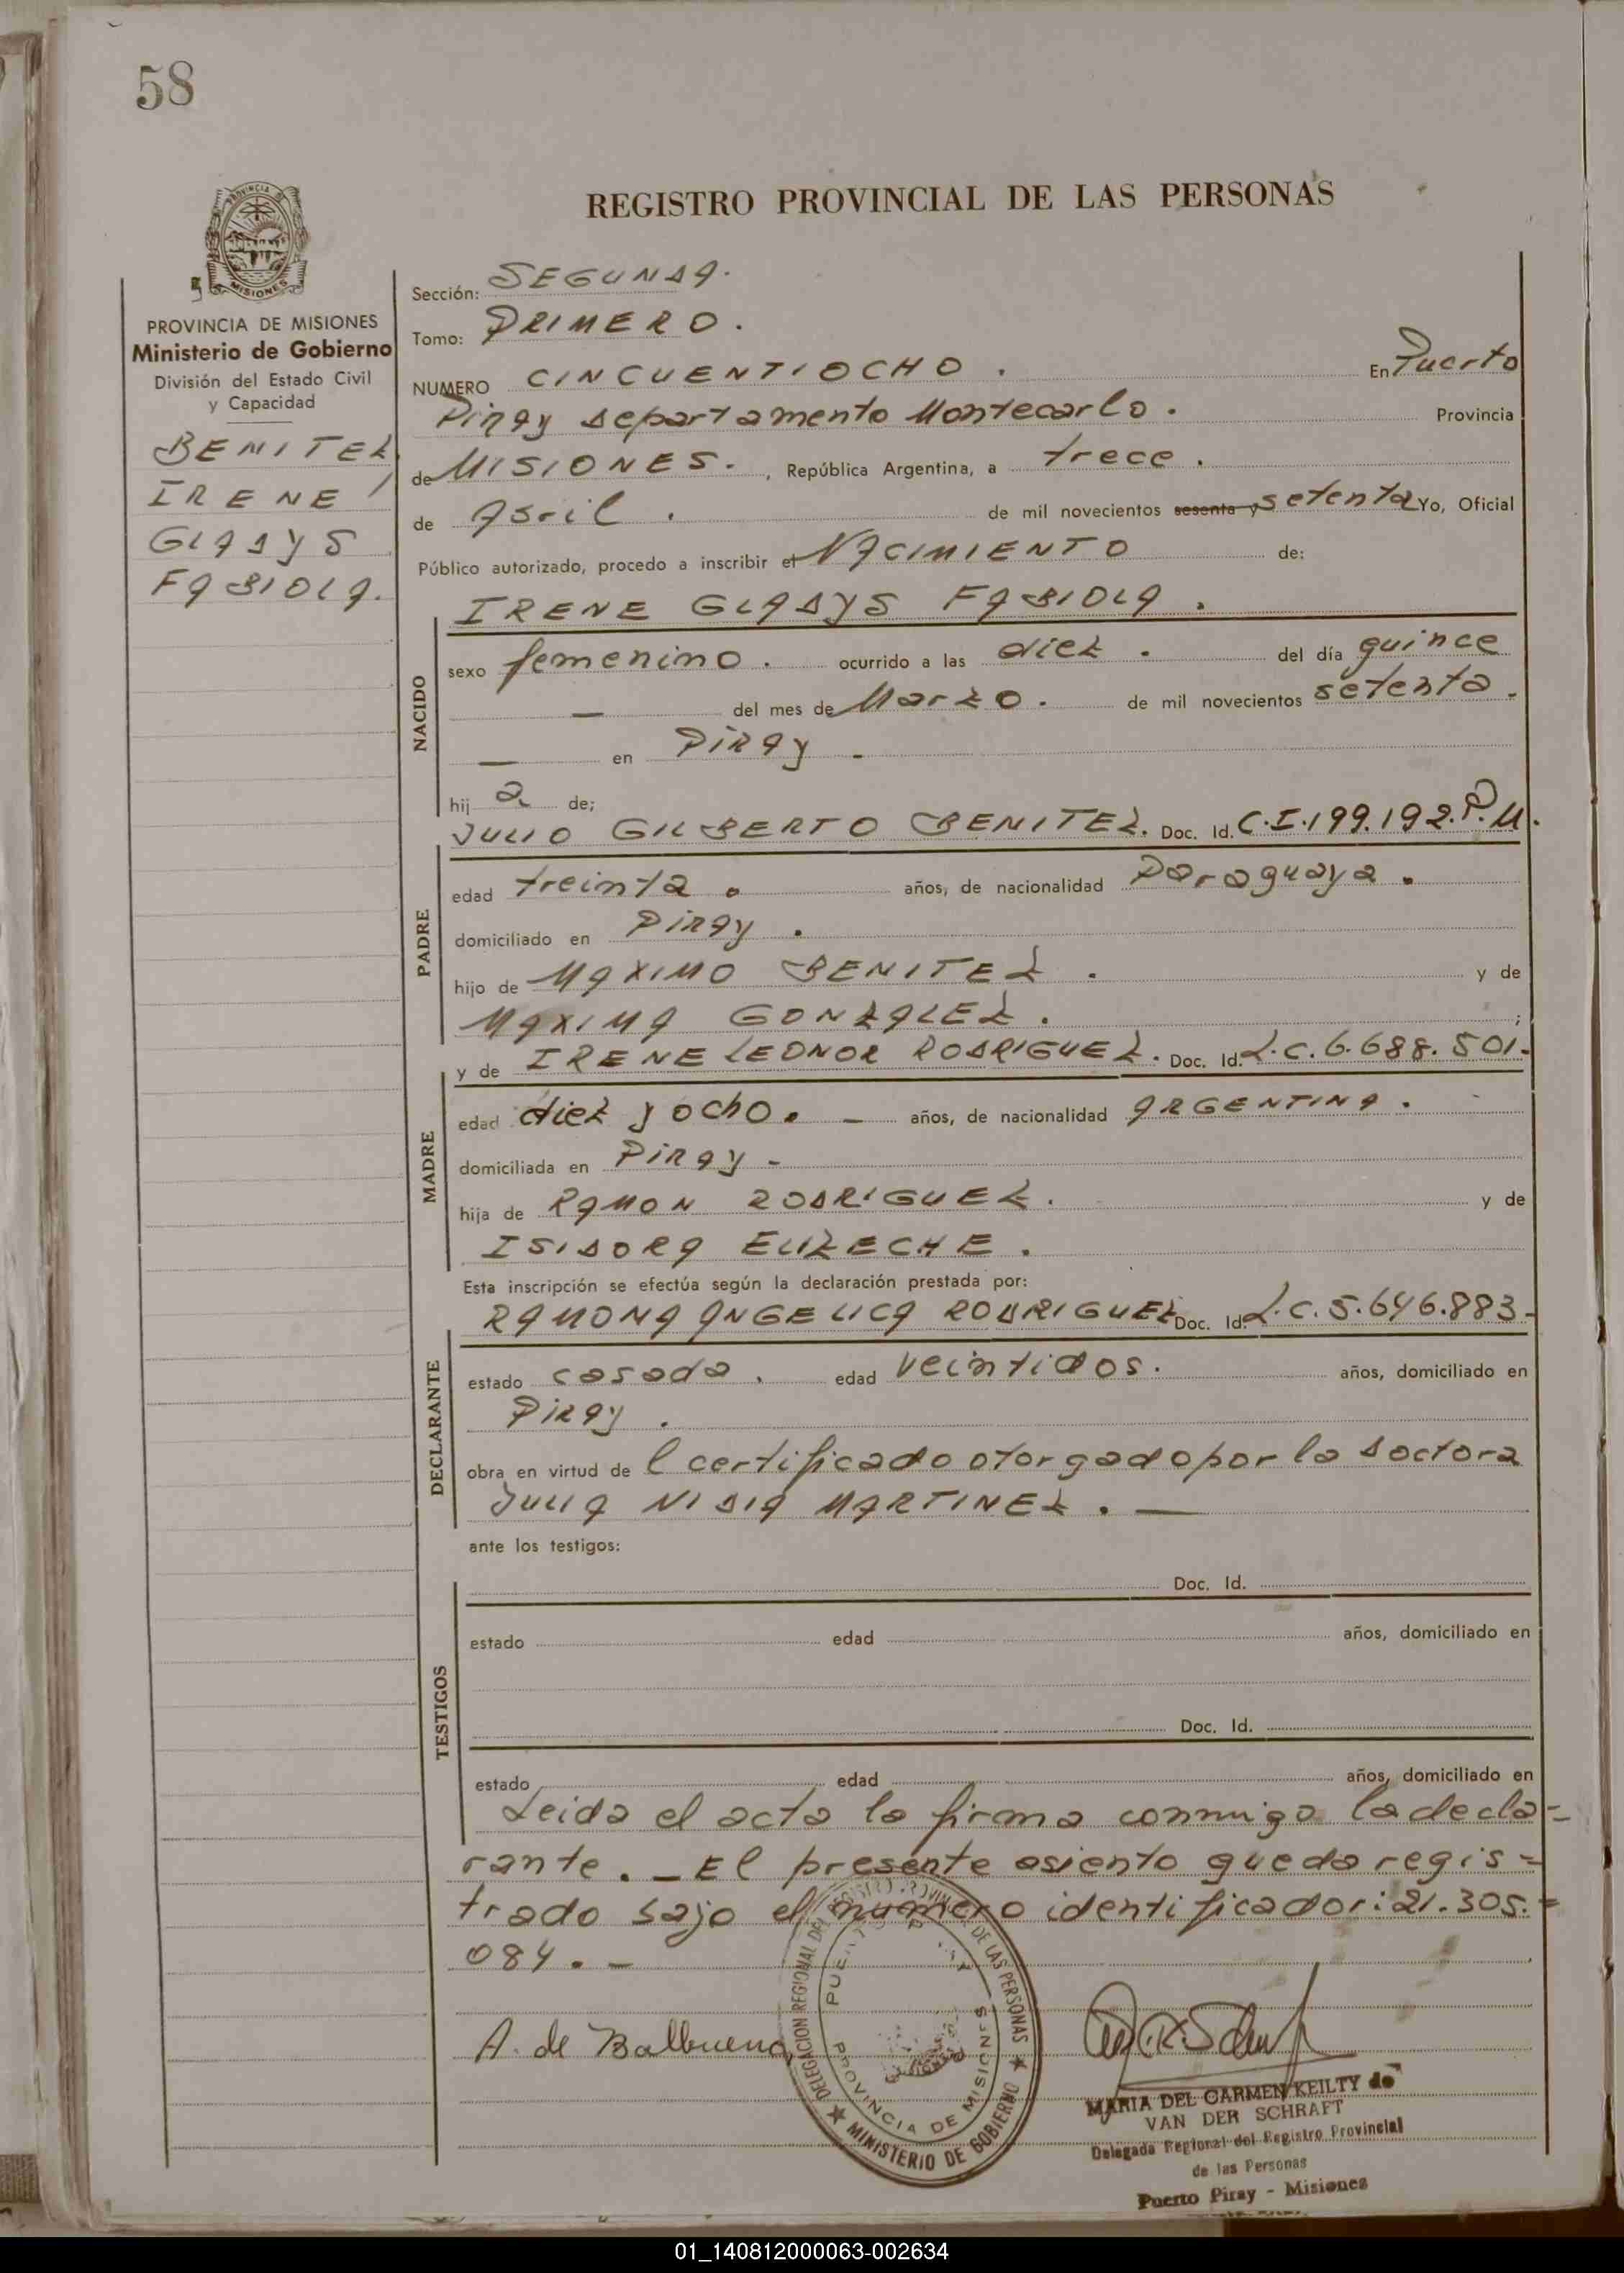 58
REGISTRO PROVINCIAL DE LAS PERSONAS
PROVINCIA DE
MISIONES
PROVINCIA DE MISIONES
Ministerio de Gobierno
División del Estado Civil
y Capacidad
BENITEZ
IRENE
GLADYS
FABIOLA.
Sección: SEGUNDA.
Tomo: PRIMERO.
NUMERO CINCUENTIOCHO. En Puerto
Piray Departamento Montecarlo. Provincia
de MISIONES. , República Argentina, a trece.
de Abril. de mil novecientos sesenta y setenta Yo, Oficial
Público autorizado, procedo a inscribir el NACIMIENTO de:
IRENE GLADYS FABIOLA.
NACIDO
sexo femenino. ocurrido a las diez. del día quince
— del mes de Marzo. de mil novecientos setenta.
— en Piray -
hij a de;
JULIO GILBERTO BENITEZ. Doc. Id. C.I.199.192.P.M.
PADRE
edad treinta. años, de nacionalidad Paraguaya.
domiciliado en Piray.
hijo de MAXIMO BENITEZ. y de
MAXIMA GONZALEZ. ;
y de IRENE LEONOR RODRIGUEZ. Doc. Id. L.C.6.688.501.-
MADRE
edad diez y ocho. — años, de nacionalidad ARGENTINA.
domiciliada en Piray -
hija de RAMON RODRIGUEZ. y de
ISIDORA ELIZECHE.
Esta inscripción se efectúa según la declaración prestada por:
RAMONA ANGELICA RODRIGUEZ Doc. Id. L.C.5.646.883.-
DECLARANTE
estado casada. edad veintidos. años, domiciliado en
Piray.
obra en virtud de l certificado otorgado por la Doctora
JULIA NIDIA MARTINEZ. —
ante los testigos:
TESTIGOS
Doc. Id.
estado edad años, domiciliado en
Doc. Id.
estado edad años, domiciliado en
Leida el acta la firma conmigo la decla=
rante. — El presente asiento queda regis=
trado bajo el numero identificador: 21.305.=
084. -
A. de Balbuena
DELEGACION REGIONAL DEL REGISTRO PROVINCIAL DE LAS PERSONAS
PROVINCIA DE MISIONES
★ MINISTERIO DE GOBIERNO ★
MARIA DEL CARMEN KEILTY de
VAN DER SCHRAFT
Delegada Regional del Registro Provincial
de las Personas
Puerto Piray - Misiones
01_140812000063-002634